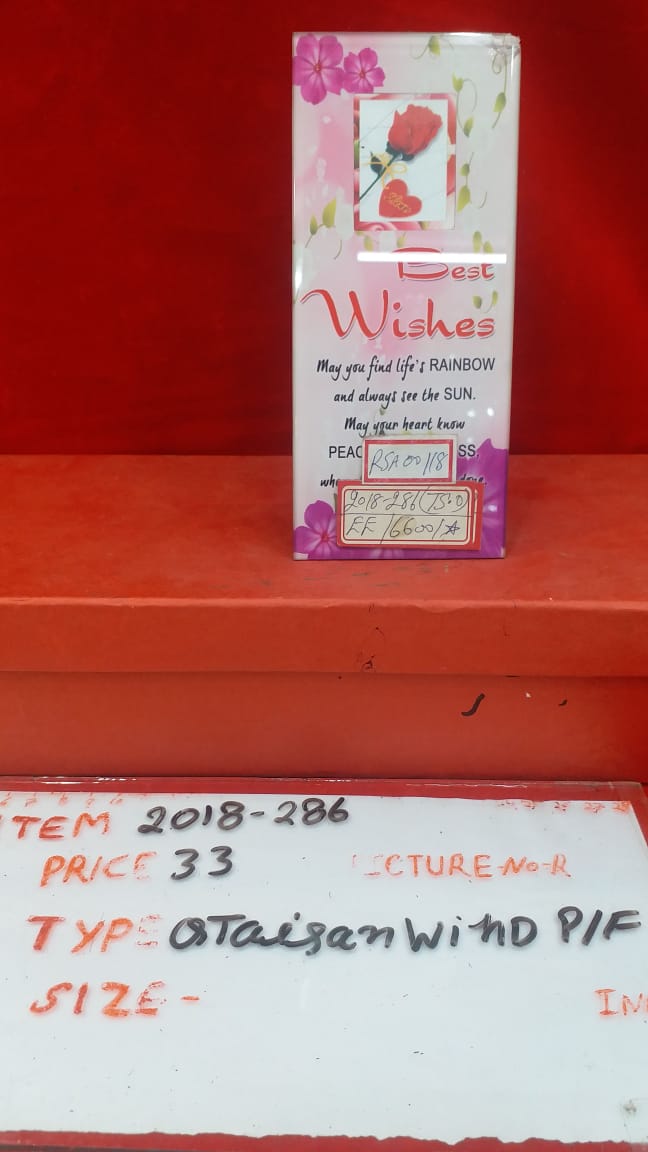 Best
Wishes
May you find life's RAINBOW
and always see the SUN.
May your heart know
PEAC SS,
whe done.
RSA00/18
2018-286(TS.D)
EE/6600/☆
ITEM 2018-286
PRICE 33 ICTURE-No-R
TYPE WiND P/F
SIZE - IN